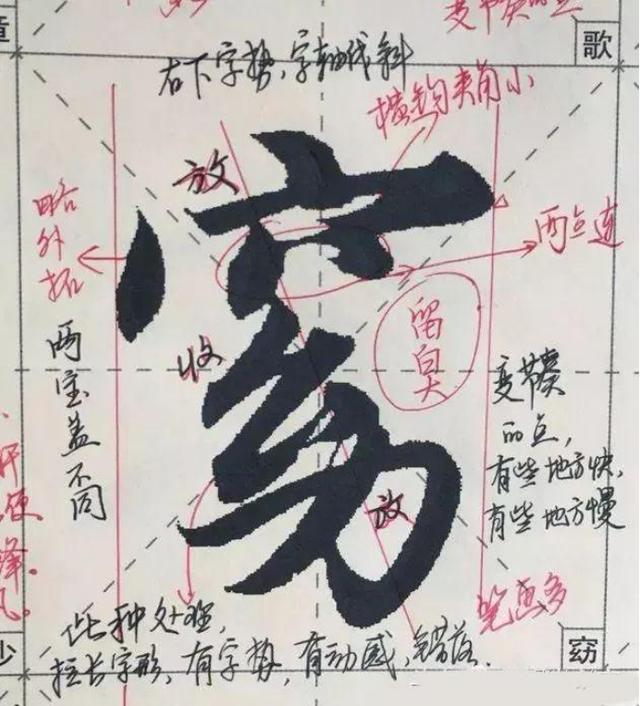 歌
变节奏的点
右下字势、字轴线斜
横钩夹角小
放
略外拓
两点连
窈
收
留白大
两宝盖不同
变节奏
的点,
有些地方快,
有些地方慢
放
笔画多
此种处理,
拉长字形,有字势,有动感,错落.
窈